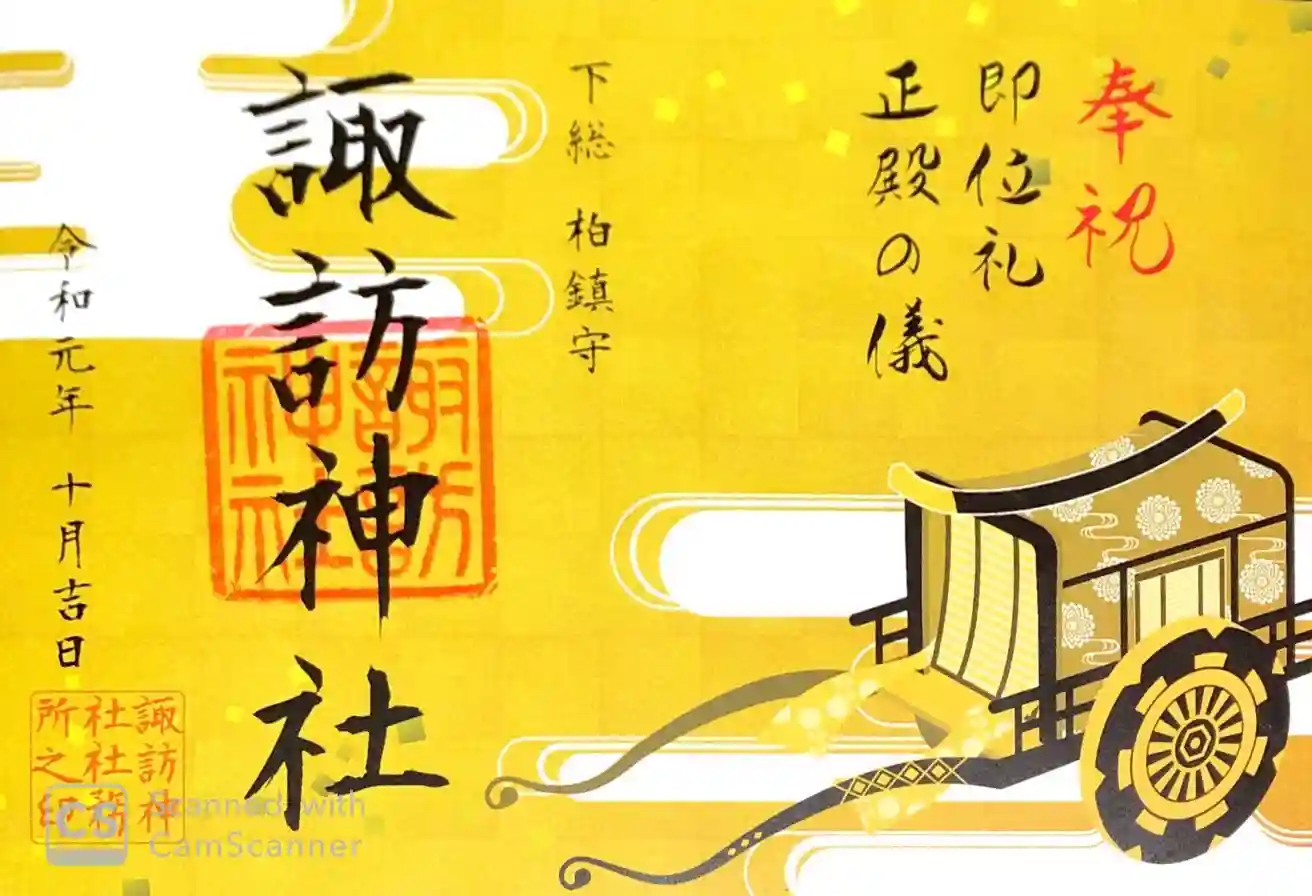 奉祝
即位礼
正殿の儀
下総 柏鎮守
諏訪神社
諏訪
神社
令和元年 十月吉日
諏訪神
社社務
所之印
CS Scanned with
CamScanner